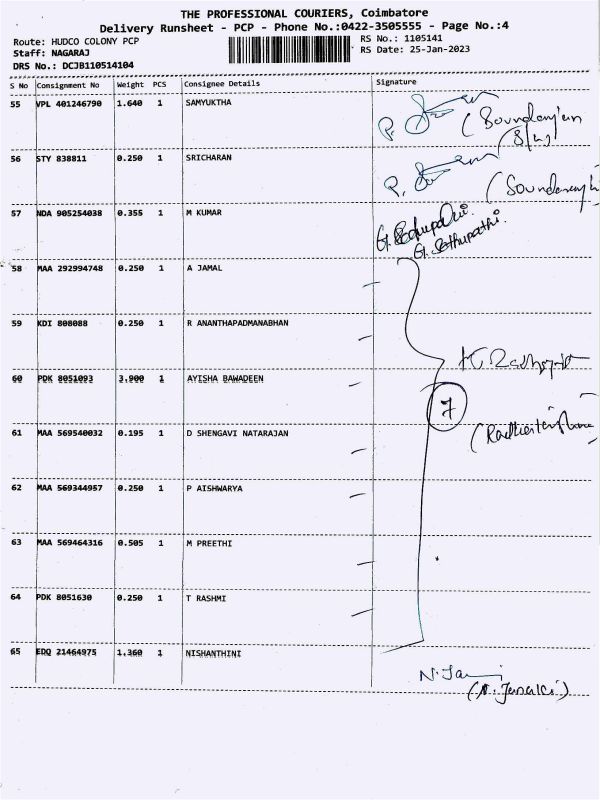 THE PROFESSIONAL COURIERS, Coimbatore
Delivery Runsheet - PCP - Phone No.:0422-3505555 - Page No.:4
Route: HUDCO COLONY PCP
Staff: NAGARAJ
DRS No.: DCJB110514104
RS No.: 1105141
RS Date: 25-Jan-2023
S No Consignment No Weight PCS Consignee Details Signature
55 VPL 401246790 1.640 1 SAMYUKTHA
P.
56 STY 838811 0.250 1 SRICHARAN
P.
57 NDA 905254038 0.355 1 M KUMAR
G. Sethupathi.
58 MAA 292994748 0.250 1 A JAMAL
59 KDI 808088 0.250 1 R ANANTHAPADMANABHAN
60 PDK 8051093 3.900 1 AYISHA BAWADEEN
7
61 MAA 569540032 0.195 1 D SHENGAVI NATARAJAN
62 MAA 569344957 0.250 1 P AISHWARYA
63 MAA 569464316 0.505 1 M PREETHI
64 PDK 8051630 0.250 1 T RASHMI
65 EDQ 21464975 1.360 1 NISHANTHINI
(N. Janaki)